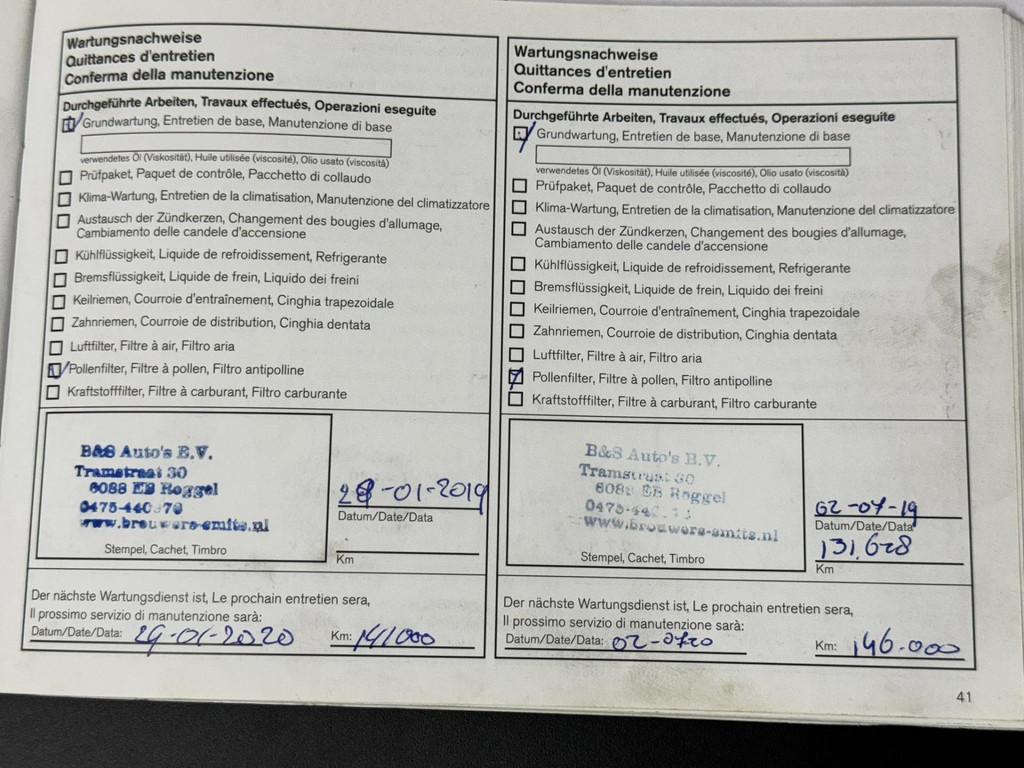 Wartungsnachweise
Quittances d'entretien
Conferma della manutenzione
Durchgeführte Arbeiten, Travaux effectués, Operazioni eseguite
Grundwartung, Entretien de base, Manutenzione di base
verwendetes Öl (Viskosität), Huile utilisée (viscosité), Olio usato (viscosità)
Prüfpaket, Paquet de contrôle, Pacchetto di collaudo
Klima-Wartung, Entretien de la climatisation, Manutenzione del climatizzatore
Austausch der Zündkerzen, Changement des bougies d'allumage,
Cambiamento delle candele d'accensione
Kühlflüssigkeit, Liquide de refroidissement, Refrigerante
Bremsflüssigkeit, Liquide de frein, Liquido dei freini
Keilriemen, Courroie d'entraînement, Cinghia trapezoidale
Zahnriemen, Courroie de distribution, Cinghia dentata
Luftfilter, Filtre à air, Filtro aria
Pollenfilter, Filtre à pollen, Filtro antipolline
Kraftstofffilter, Filtre à carburant, Filtro carburante
B&S Auto's B.V.
Tramstraat 30
6088 EB Roggel
www.brouwers-smits.nl
Stempel, Cachet, Timbro
-01-2019
Datum/Date/Data
Km
Der nächste Wartungsdienst ist, Le prochain entretien sera,
Il prossimo servizio di manutenzione sarà:
Datum/Date/Data: 29-01-2020 Km: 141000
Wartungsnachweise
Quittances d'entretien
Conferma della manutenzione
Durchgeführte Arbeiten, Travaux effectués, Operazioni eseguite
Grundwartung, Entretien de base, Manutenzione di base
verwendetes Öl (Viskosität), Huile utilisée (viscosité), Olio usato (viscosità)
Prüfpaket, Paquet de contrôle, Pacchetto di collaudo
Klima-Wartung, Entretien de la climatisation, Manutenzione del climatizzatore
Austausch der Zündkerzen, Changement des bougies d'allumage,
Cambiamento delle candele d'accensione
Kühlflüssigkeit, Liquide de refroidissement, Refrigerante
Bremsflüssigkeit, Liquide de frein, Liquido dei freini
Keilriemen, Courroie d'entraînement, Cinghia trapezoidale
Zahnriemen, Courroie de distribution, Cinghia dentata
Luftfilter, Filtre à air, Filtro aria
Pollenfilter, Filtre à pollen, Filtro antipolline
Kraftstofffilter, Filtre à carburant, Filtro carburante
B&S Auto's B.V.
Tramstraat 30
6088 EB Roggel
www.brouwers-smits.nl
Stempel, Cachet, Timbro
02-07-19
Datum/Date/Data
131.628
Km
Der nächste Wartungsdienst ist, Le prochain entretien sera,
Il prossimo servizio di manutenzione sarà:
Datum/Date/Data: 02-0720 Km: 146.000
41